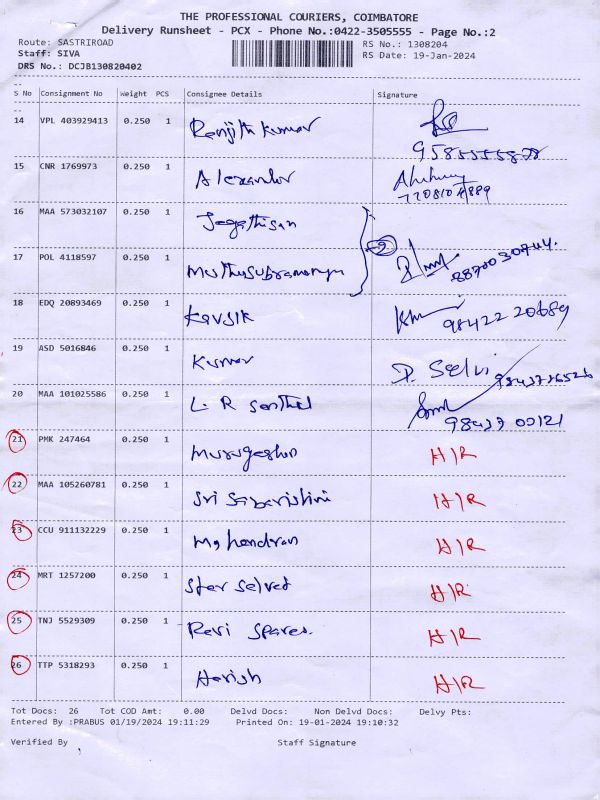 THE PROFESSIONAL COURIERS, COIMBATORE
Delivery Runsheet - PCX - Phone No.:0422-3505555 - Page No.:2
Route: SASTRIROAD RS No.: 1308204
Staff: SIVA RS Date: 19-Jan-2024
DRS No.: DCJB130820402
S No Consignment No Weight PCS Consignee Details Signature
14 VPL 403929413 0.250 1 Renjith kumar
15 CNR 1769973 0.250 1 Alexander
16 MAA 573032107 0.250 1 Jegathisan
17 POL 4118597 0.250 1 Muthusubramanyan 8870030744.
18 EDQ 20893469 0.250 1 Kavsik 98422 20689
19 ASD 5016846 0.250 1 Kumar P. Selvi
20 MAA 101025586 0.250 1 L. R Senthil 98437 00121
21 PMK 247464 0.250 1 Murugeshan H/R
22 MAA 105260781 0.250 1 Sri Sabarishini H/R
23 CCU 911132229 0.250 1 Mahendran H/R
24 MRT 1257200 0.250 1 Star H/R
25 TNJ 5529309 0.250 1 Ravi Spares. H/R
26 TTP 5318293 0.250 1 Harish H/R
Tot Docs: 26 Tot COD Amt: 0.00 Delvd Docs: Non Delvd Docs: Delvy Pts:
Entered By :PRABUS 01/19/2024 19:11:29 Printed On: 19-01-2024 19:10:32
Verified By Staff Signature